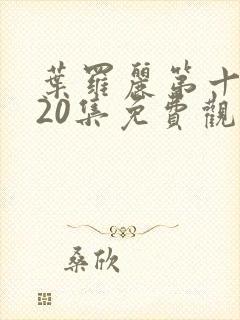 葉羅麗第十
20集免費觀
桑欣